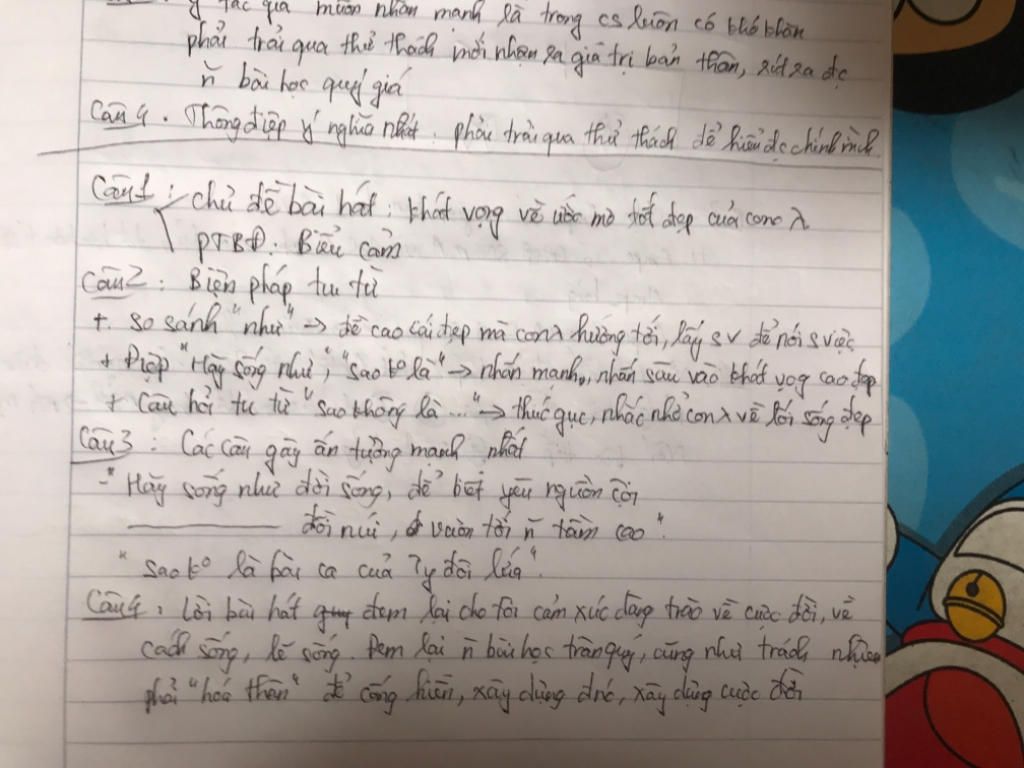 ý tác giả muốn nhấn mạnh là trong cs luôn có khó khăn
phải trải qua thử thách mới nhận ra giá trị bản thân, rút ra đc
ñ bài học quý giá
Câu 4. Thông điệp ý nghĩa nhất. phải trải qua thử thách để hiểu đc chính mình
Câu 1: - chủ đề bài hát: khát vọng về ước mơ tốt đẹp của con λ
PTBĐ. Biểu cảm
Câu 2: Biện pháp tu từ
+ so sánh "như" → đề cao cái đẹp mà con λ hướng tới, lấy sv để nói s việc
+ Điệp "Hãy sống như", "sao ko là" → nhấn mạnh, nhấn sâu vào khát vọg cao đẹp
+ Câu hỏi tu từ "sao không là ..." → thúc gục, nhắc nhở con λ về lối sống đẹp
Câu 3: Các câu gây ấn tượng mạnh nhất
"Hãy sống như đời sông, để biết yêu nguồn cội
đồi núi, vươn tới ñ tầm cao"
"sao ko là bài ca của ty đôi lứa"
Câu 4, Lời bài hát đem lại cho tôi cảm xúc dâng trào về cuộc đời, về
cách sống, lẽ sống. Đem lại ñ bài học trân quý, cũng như trách nhiệm
phải "hoá thân" để cống hiến, xây dựng đnc, xây dựng cuộc đời